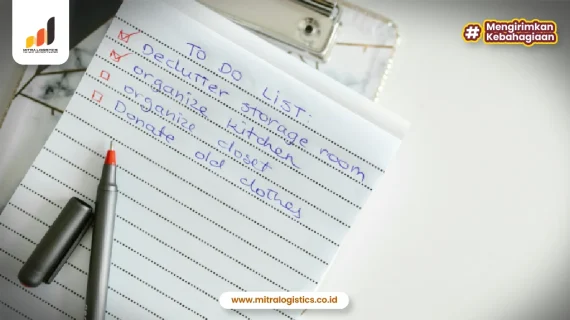 MITRALOGISTICS
# Mengirimkan
Kebahagiaan
TO DO LIST:
Declutter storage room
organize kitchen
organize closet
Donate old clothes
www.mitralogistics.co.id